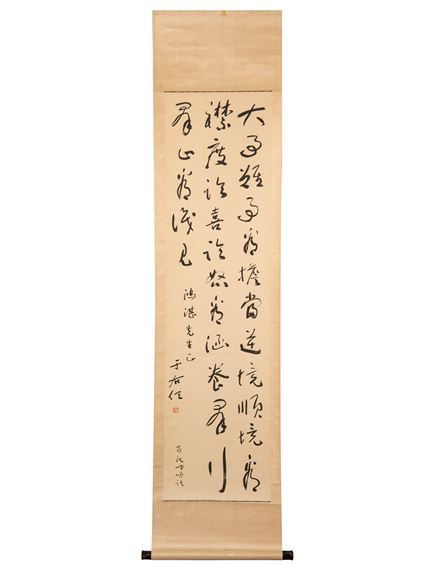 大事難事看擔當逆境順境看
襟度臨喜臨怒看涵養羣行
羣止看識見
鴻湛先生正
于右任
呻吟語